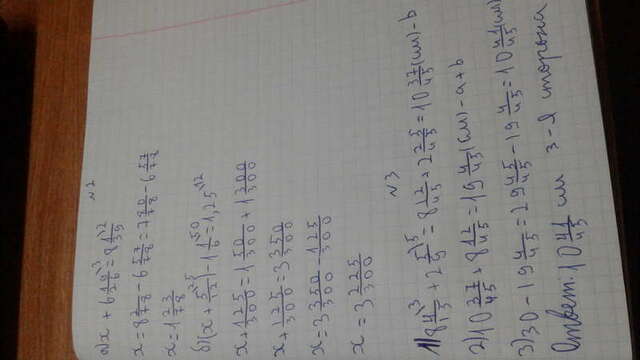 №2
а) x + 6 19/26 \3 = 8 1/39 \2
x = 8 2/78 - 6 57/78 = 7 80/78 - 6 57/78
x = 1 23/78
б) (x + 5/12 \25) - 1 1/6 \50 = 1,25 \12
x + 125/300 = 1 50/300 + 1 300/300
x + 125/300 = 3 350/300
x = 3 350/300 - 125/300
x = 3 225/300
№3
1) 8 4/15 \3 + 2 5/9 \5 = 8 12/45 + 2 25/45 = 10 37/45 (см) - b
2) 10 37/45 + 8 12/45 = 19 4/45 (см) - a + b
3) 30 - 19 4/45 = 29 45/45 - 19 4/45 = 10 41/45 (см)
Ответ: 10 41/45 см 3-я сторона